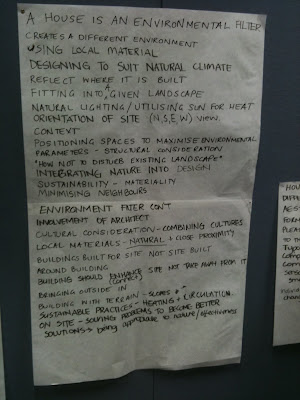 A HOUSE IS AN ENVIRONMENTAL FILTER
CREATES A DIFFERENT ENVIRONMENT
USING LOCAL MATERIAL
DESIGNING TO SUIT NATURAL CLIMATE
REFLECT WHERE IT IS BUILT
FITTING INTO A GIVEN LANDSCAPE
NATURAL LIGHTING/UTILISING SUN FOR HEAT
ORIENTATION OF SITE (N,S,E,W) VIEW.
CONTEXT
POSITIONING SPACES TO MAXIMISE ENVIRONMENTAL
PARAMETERS - STRUCTURAL CONSIDERATION
"HOW NOT TO DISTURB EXISTING LANDSCAPE"
INTEGRATING NATURE INTO DESIGN
SUSTAINABILITY - MATERIALITY
MINIMISING NEIGHBOURS
ENVIRONMENT FILTER CONT
INVOLVEMENT OF ARCHITECT
CULTURAL CONSIDERATION - COMBINING CULTURES
LOCAL MATERIALS - NATURAL + CLOSE PROXIMITY
BUILDINGS BUILT FOR SITE NOT SITE BUILT
AROUND BUILDING
BUILDING SHOULD ENHANCE SITE NOT TAKE AWAY FROM IT
(CONNECT)
BRINGING OUTSIDE IN
BUILDING WITH TERRAIN - SLOPES +
SUSTAINABLE PRACTICES - HEATING + CIRCULATION
ON SITE - SOLVING PROBLEMS TO BECOME BETTER
SOLUTIONS → being appropriate to nature/
HOUS
DIFFE
AESI
FORM
PLEA
TO TH